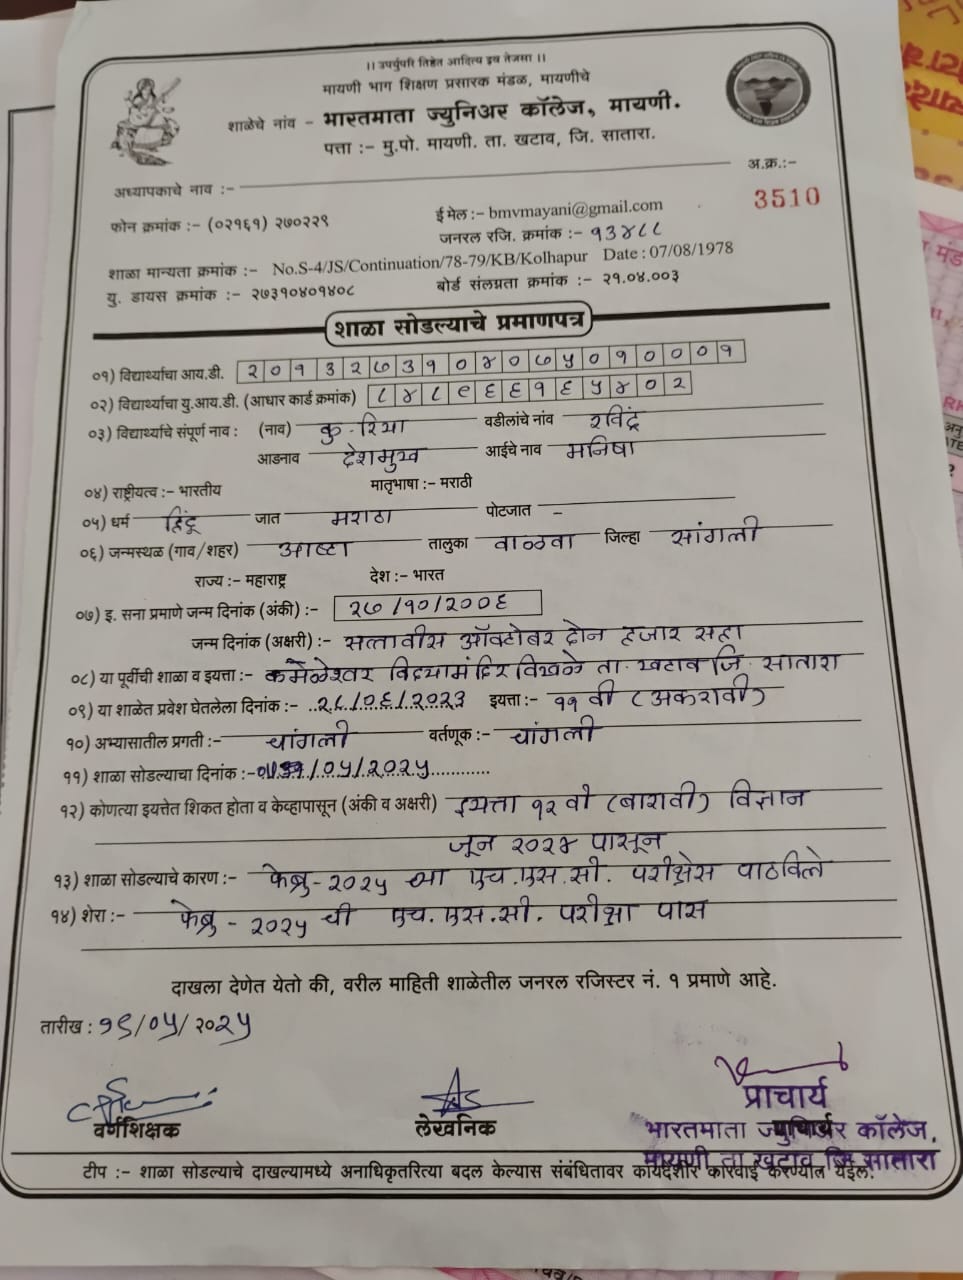 ।। उपर्युपरि तिष्ठेत आदित्य इव तेजसा ।।
मायणी भाग शिक्षण प्रसारक मंडळ, मायणीचे
शाळेचे नांव - भारतमाता ज्युनिअर कॉलेज, मायणी.
पत्ता :- मु.पो. मायणी. ता. खटाव, जि. सातारा.
अध्यापकाचे नाव :-
अ.क्र.:-
3510
फोन क्रमांक :- (०२१६१) २७०२२९
ई मेल :- bmvmayani@gmail.com
जनरल रजि. क्रमांक :- १३४८८
शाळा मान्यता क्रमांक :- No.S-4/JS/Continuation/78-79/KB/Kolhapur Date : 07/08/1978
यु. डायस क्रमांक :- २७३१०४०१४०८ बोर्ड संलग्नता क्रमांक :- २१.०४.००३
शाळा सोडल्याचे प्रमाणपत्र
०१) विद्यार्थ्याचा आय.डी. २०१३२७३१०४०७५०१०००१
०२) विद्यार्थ्याचा यु.आय.डी. (आधार कार्ड क्रमांक) ८४८९६६१६५४०२
०३) विद्यार्थ्याचे संपूर्ण नाव : (नाव) कु. रिया वडीलांचे नांव रविंद्र
आडनाव देशमुख आईचे नाव मनिषा
०४) राष्ट्रीयत्व :- भारतीय मातृभाषा :- मराठी
०५) धर्म हिंदू जात मराठा पोटजात -
०६) जन्मस्थळ (गाव/शहर) आष्टा तालुका वाळवा जिल्हा सांगली
राज्य :- महाराष्ट्र देश :- भारत
०७) इ. सना प्रमाणे जन्म दिनांक (अंकी) :- २७/१०/२००६
जन्म दिनांक (अक्षरी) :- सत्तावीस ऑक्टोबर दोन हजार सहा
०८) या पूर्वीची शाळा व इयत्ता :- कर्मळेश्वर विद्यामंदिर विखळे ता. खटाव जि. सातारा
०९) या शाळेत प्रवेश घेतलेला दिनांक :- २८/०६/२०२३ इयत्ता :- ११ वी (अकरावी)
१०) अभ्यासातील प्रगती :- चांगली वर्तणूक :- चांगली
११) शाळा सोडल्याचा दिनांक :- /०५/२०२५
१२) कोणत्या इयत्तेत शिकत होता व केव्हापासून (अंकी व अक्षरी) इयत्ता १२ वी (बारावी) विज्ञान
जून २०२४ पासून
१३) शाळा सोडल्याचे कारण :- फेब्रु - २०२५ च्या एच.एस.सी. परीक्षेस पाठविले
१४) शेरा :- फेब्रु - २०२५ ची एच.एस.सी. परीक्षा पास
दाखला देणेत येतो की, वरील माहिती शाळेतील जनरल रजिस्टर नं. १ प्रमाणे आहे.
तारीख : १९/०५/२०२५
वर्गशिक्षक लेखनिक
प्राचार्य
भारतमाता ज्युनिअर कॉलेज,
मायणी ता खटाव जि सातारा
टीप :- शाळा सोडल्याचे दाखल्यामध्ये अनाधिकृतरित्या बदल केल्यास संबंधितावर कायदेशीर कारवाई करण्यात येईल.